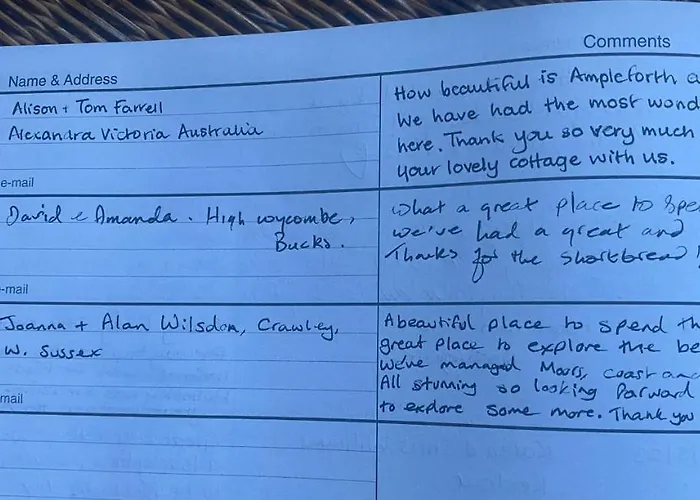 Comments
Name & Address
Alison + Tom Farrell
Alexandra Victoria Australia
e-mail
How beautiful is Ampleforth a
We have had the most wond
here. Thank you so very much
your lovely cottage with us.
David & Amanda. High wycombe,
Bucks.
-mail
What a great place to spe
we've had a great and
Thanks for the shortbread!
Joanna + Alan Wilsdon, Crawley,
W. Sussex
mail
A beautiful place to spend th
great place to explore the be
We've managed Moors, coast and
All stunning so looking forward
to explore some more. Thank you